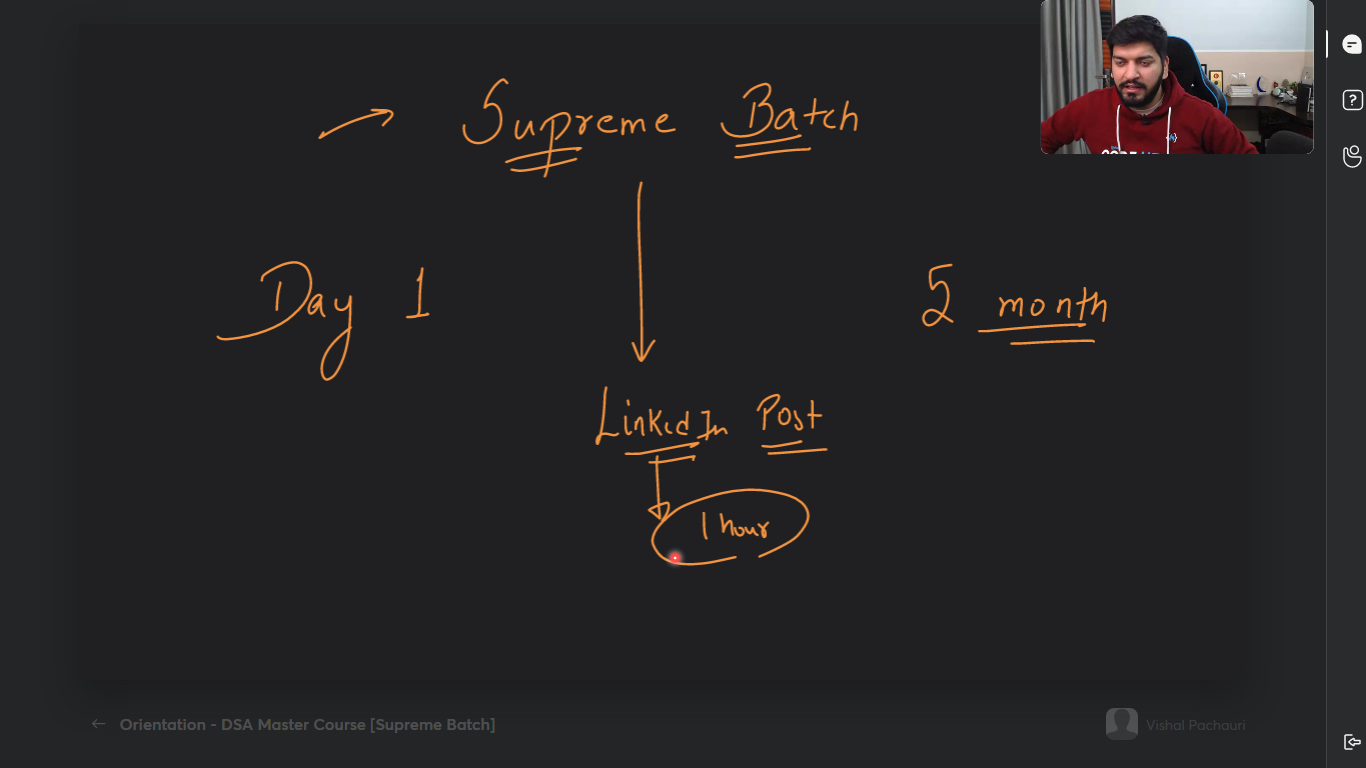 Supreme Batch
Day 1
5 month
LinkedIn Post
1 hour
Orientation - DSA Master Course [Supreme Batch]
Vishal Pachauri